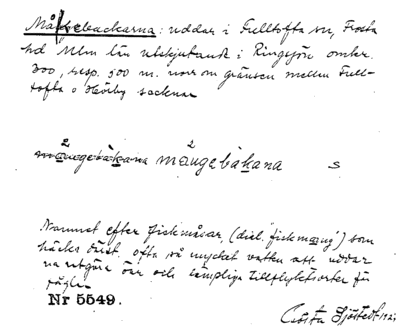 Måsebackarna: uddar i Fulltofta sn, Frosta
hd Mlm län utskjutande i Ringsjön omkr.
300, resp. 500 m. norr om gränsen mellan Full-
tofta o Hörby socknar
mångebàkana mångebàkana s
Namnet efter fiskmåsar, (dial. "fiskmaang") som
häcka där. ofta så mycket vatten att uddar
na utgöra öar och lämpliga tillflyktsorter för
fåglar
Nr 5549.
Gösta Sjöstedt